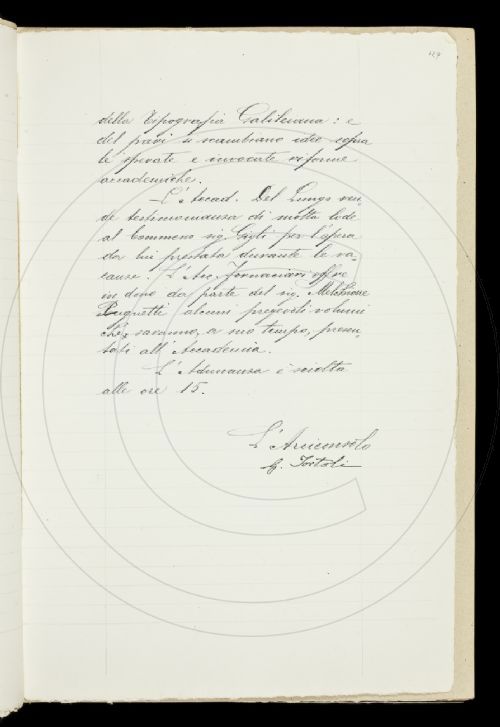 129
della Tipografia Galileiana: e
del pari si scambiano idee sopra
le sperate e invocate riforme
accademiche.
L'Accad. Del Lungo ren-
de testimonianza di molta lode
al Commesso sig. Gigli per l'opera
da lui prestata durante le va-
canze. L'Acc. Fornaciari offre
in dono da parte del sig. Melchiorre
Bughetti alcuni pregevoli volumi
che saranno, a suo tempo, presen-
tati all'Accademia.
L'Adunanza è sciolta
alle ore 15.
L'Arciconsolo
G. Tortoli